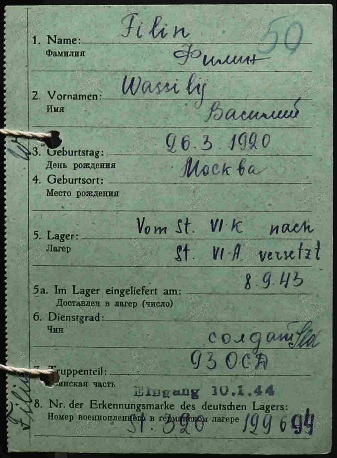 50
1. Name: Filin
Фамилия Филин
2. Vornamen: Wassilij
Имя Василий
3. Geburtstag: 26.3 1920
День рождения
4. Geburtsort: Москва
Место рождения
5. Lager: Vom St. VI K nach
Лагер St. VI-A versetzt
8.9.43
5a. Im Lager eingeliefert am:
Доставлен в лагер (число)
6. Dienstgrad:
Чин солдат
7. Truppenteil: 93 ОСД
Воинская часть
Eingang 10.1.44
8. Nr. der Erkennungsmarke des deutschen Lagers:
Номер военнопленного в германском лагере
St. 326 129694
Filin